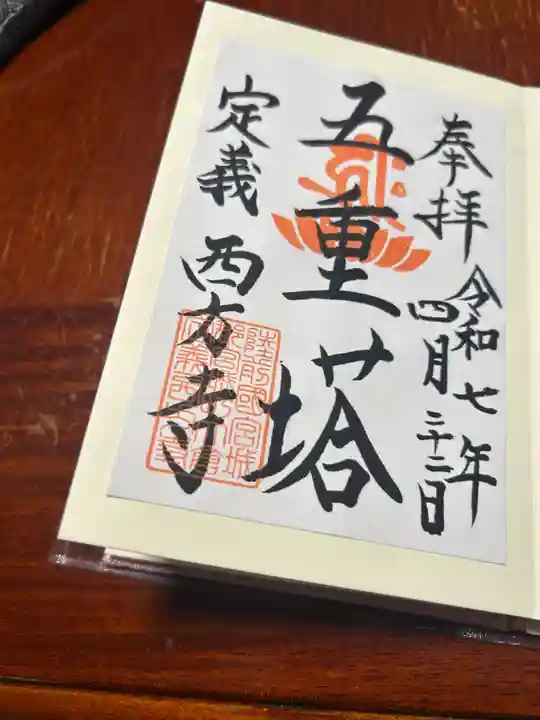 奉拝
令和七年
四月二十二日
五重塔
定義
西方寺
陸前國宮城